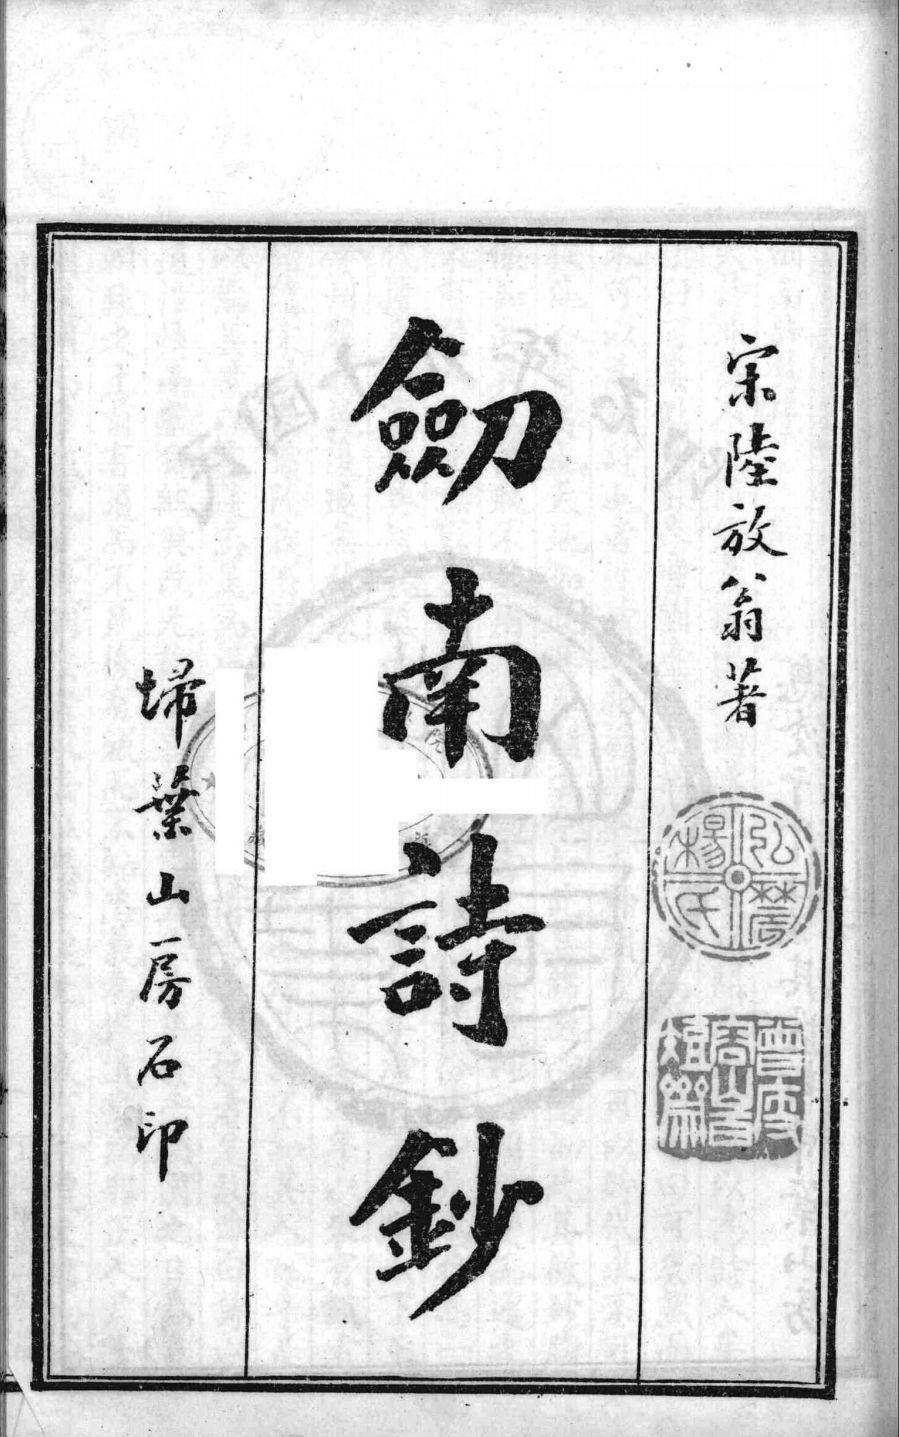 宋陸放翁著
劒南詩鈔
埽葉山房石印
楊氏